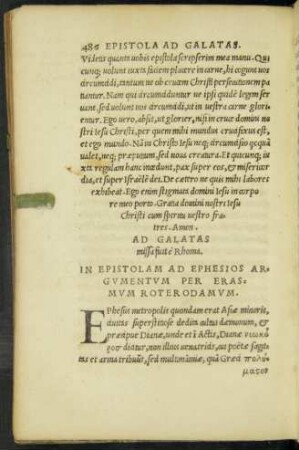 486 EPISTOLA AD GALATAS.
Videtis quantis uobis epistolã scripserim mea manu. Qui
cunq; uolunt iuxta faciem placere in carne, hi cogunt uos
circuncidi, tantum ne ob crucem Christi persecutionem pa
tiantur. Nam qui circunciduntur ne ipsi quidẽ legem ser
uant, sed uolunt uos circuncidi, ut in uestra carne glori
entur. Ego uero, absit, ut glorier, nisi in cruce domini no
stri Iesu Christi, per quem mihi mundus crucifixus est,
et ego mundo. Nã in Christo Iesu neq; circuncisio qc quã
ualet, neq; præputium, sed noua creatura. Et quicunq; iu
xta regulam hanc incedunt, pax super eos, & misericor
dia, et super Israëlẽ dei. De cætero ne quis mihi labores
exhibeat. Ego enim stigmata domini Iesu in corpo
re meo porto. Gratia domini nostri Iesu
Christi cum spiritu uestro fra
tres. Amen.
AD GALATAS
missa fuit è Rhoma.
IN EPISTOLAM AD EPHESIOS AR
GVMENTVM PER ERAS
MVM ROTERODAMVM.
EPhesus metropolis quondam erat Asiæ minoris,
ciuitas superstitiose dedita cultui dæmonum, &
præcipue Dianæ, unde et in Actis, Dianæ νεωκό
ρος dicitur, non illius uenatricis, cui poëtæ sagit
tas et arma tribuũt, sed multimãmiæ, quã Græci πολύ
μαστον